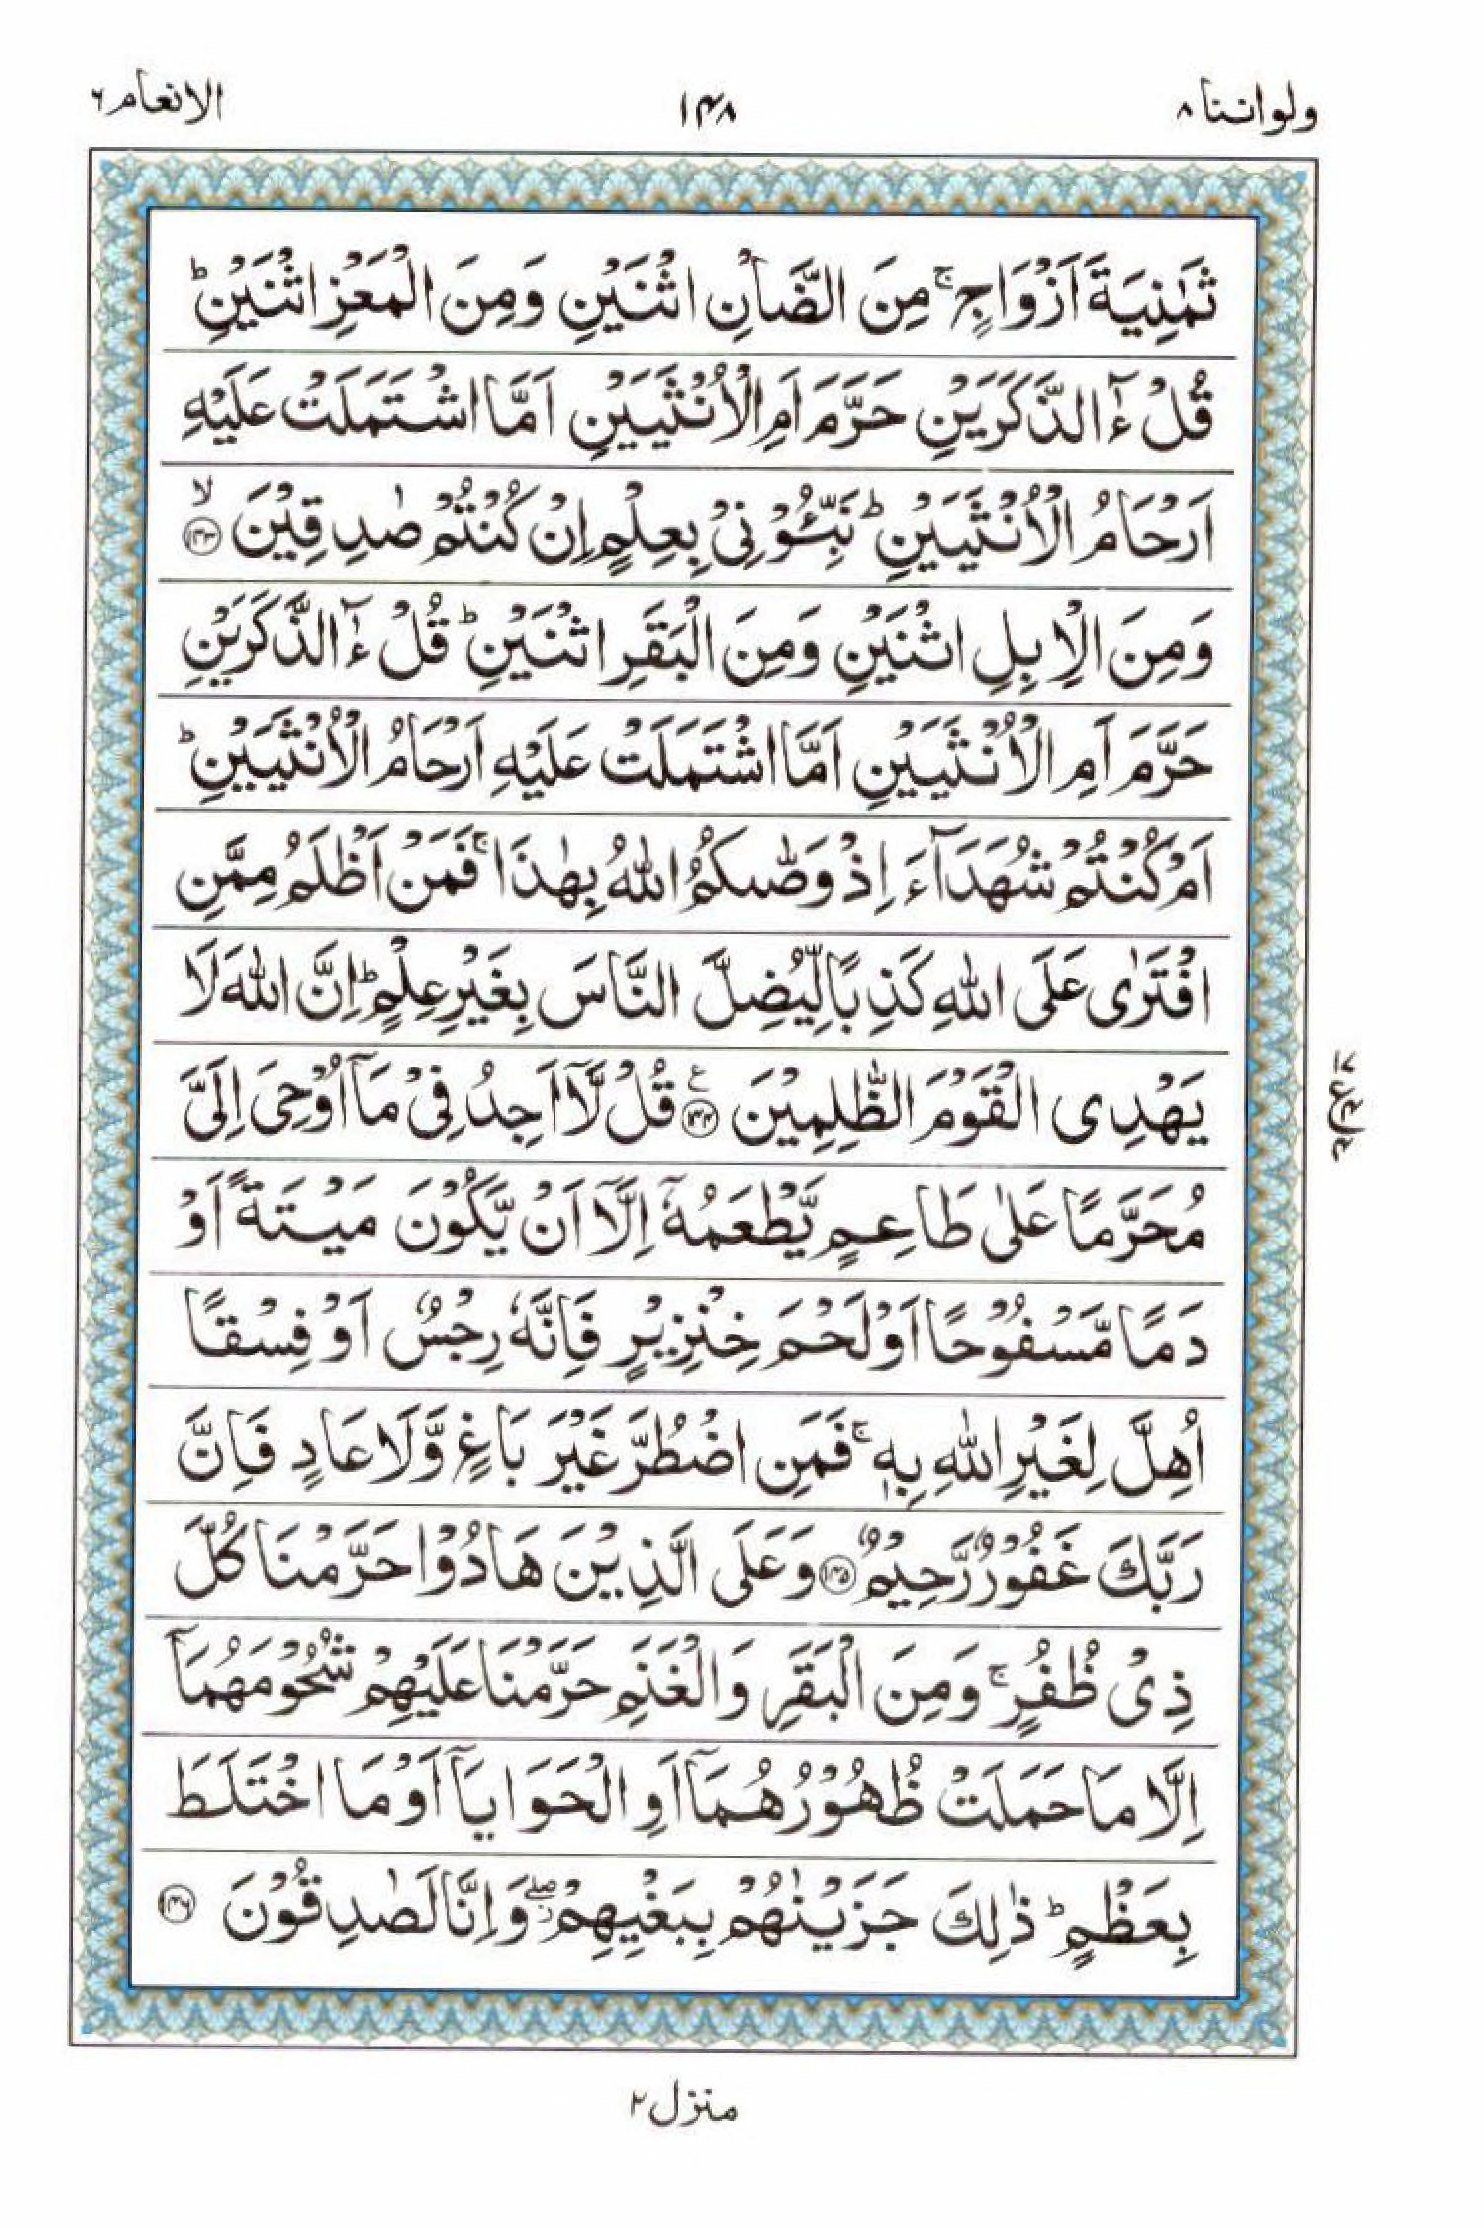 ولواننا ٨
١٤٨
الانعام ٦
ثَمٰنِيَةَ اَزْوَاجٍ ۚ مِنَ الضَّاْنِ اثْنَيْنِ وَمِنَ الْمَعْزِ اثْنَيْنِ ؕ
قُلْ ءٰٓالذَّكَرَيْنِ حَرَّمَ اَمِ الْاُنْثَيَيْنِ اَمَّا اشْتَمَلَتْ عَلَيْهِ
اَرْحَامُ الْاُنْثَيَيْنِ ؕ نَبِّـُٔوْنِىْ بِعِلْمٍ اِنْ كُنْتُمْ صٰدِقِيْنَ ۙ ﴿١٤٣﴾
وَمِنَ الْاِبِلِ اثْنَيْنِ وَمِنَ الْبَقَرِ اثْنَيْنِ ؕ قُلْ ءٰٓالذَّكَرَيْنِ
حَرَّمَ اَمِ الْاُنْثَيَيْنِ اَمَّا اشْتَمَلَتْ عَلَيْهِ اَرْحَامُ الْاُنْثَيَيْنِ ؕ
اَمْ كُنْتُمْ شُهَدَآءَ اِذْ وَصّٰىكُمُ اللّٰهُ بِهٰذَا ۚ فَمَنْ اَظْلَمُ مِمَّنِ
افْتَرٰى عَلَى اللّٰهِ كَذِبًا لِّيُضِلَّ النَّاسَ بِغَيْرِ عِلْمٍ ؕ اِنَّ اللّٰهَ لَا
يَهْدِى الْقَوْمَ الظّٰلِمِيْنَ ﴿١٤٤﴾ ع قُلْ لَّآ اَجِدُ فِىْ مَآ اُوْحِىَ اِلَىَّ
مُحَرَّمًا عَلٰى طَاعِمٍ يَّطْعَمُهٗٓ اِلَّآ اَنْ يَّكُوْنَ مَيْتَةً اَوْ
دَمًا مَّسْفُوْحًا اَوْ لَحْمَ خِنْزِيْرٍ فَاِنَّهٗ رِجْسٌ اَوْ فِسْقًا
اُهِلَّ لِغَيْرِ اللّٰهِ بِهٖ ۚ فَمَنِ اضْطُرَّ غَيْرَ بَاغٍ وَّلَا عَادٍ فَاِنَّ
رَبَّكَ غَفُوْرٌ رَّحِيْمٌ ﴿١٤٥﴾ وَعَلَى الَّذِيْنَ هَادُوْا حَرَّمْنَا كُلَّ
ذِىْ ظُفُرٍ ۚ وَمِنَ الْبَقَرِ وَالْغَنَمِ حَرَّمْنَا عَلَيْهِمْ شُحُوْمَهُمَآ
اِلَّا مَا حَمَلَتْ ظُهُوْرُهُمَآ اَوِ الْحَوَايَآ اَوْ مَا اخْتَلَطَ
بِعَظْمٍ ؕ ذٰلِكَ جَزَيْنٰهُمْ بِبَغْيِهِمْ ۖ وَاِنَّا لَصٰدِقُوْنَ ﴿١٤٦﴾
منزل ٢